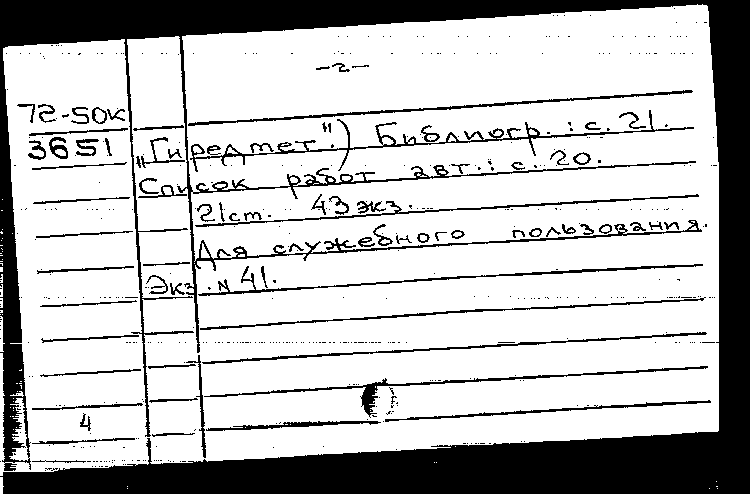 -2-
72-50к
3651
„Гиредмет".) Библиогр.: с. 21.
Список работ авт.: с. 20.
21 ст. 43 экз.
Для служебного пользования.
Экз. № 41.
4